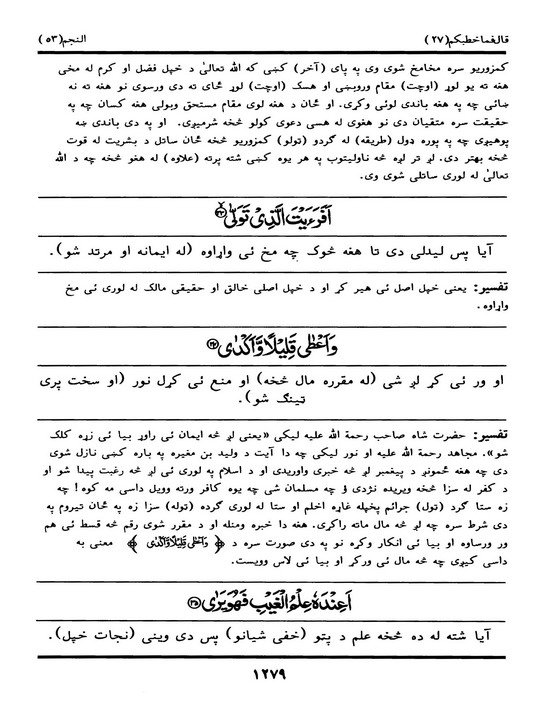 قال فما خطبکم (۲۷) النجم (۵۳)
کمزوریو سره مخامخ شوی وی په پای (آخر) کښی که الله تعالیٰ د خپل فضل او کرم له مخی
هغه ته یو لوړ (اوچت) مقام وروبښی او هسک (اوچت) لوړ ځای ته دی ورسوی نو هغه ته نه
ښائی چه په هغه باندی لوئی وکړی. او ځان د هغه لوی مقام مستحق وبولی هغه کسان چه په
حقیقت سره متقیان دی نو هغوی له هسی دعوی کولو څخه شرمیږی. او په دی باندی ښه
پوهیږی چه په پوره ډول (طریقه) له ګردو (تولو) کمزوریو څخه ځان ساتل د بشریت له قوت
څخه بهتر دی. لږ تر لږه څه ناولیتوب په هر یوه کښی شته پرته (علاوه) له هغو څخه چه د الله
تعالیٰ له لوری ساتلی شوی وی.
اَفَرَءَيْتَ الَّذِىْ تَوَلّٰى ﴿۳۳﴾
آیا پس لیدلی دی تا هغه څوک چه مخ ئی واړاوه (له ایمانه او مرتد شو).
تفسیر: یعنی خپل اصل ئی هیر کړ او د خپل اصلی خالق او حقیقی مالک له لوری ئی مخ
واړاوه.
وَاَعْطٰى قَلِيْلًا وَّاَكْدٰى ﴿۳۴﴾
او ور ئی کړ لږ شی (له مقرره مال څخه) او منع ئی کړل نور (او سخت پری
ټینګ شو).
تفسیر: حضرت شاه صاحب رحمة الله علیه لیکی «یعنی لږ څه ایمان ئی راوړ بیا ئی زړه کلک
شو». مجاهد رحمة الله علیه او نور لیکی چه دا آیت د ولید بن مغیره په باره کښی نازل شوی
دی چه هغه څمونږ د پیغمبر لږ څه خبری واوریدی او د اسلام په لوری ئی لږ څه رغبت پیدا شو او
د کفر له سزا څخه ویریده نژدی ؤ چه مسلمان شی چه یوه کافر ورته وویل داسی مه کوه! چه
زه ستا ګرد (تول) جرائم پخپله غاړه اخلم او ستا له لوری ګرده (توله) سزا زه په ځان تیروم په
دی شرط سره چه لږ څه مال ماته راکړی. هغه دا خبره ومنله او د مقرر شوی رقم څه قسط ئی هم
ور ورساوه او بیا ئی انکار وکړه نو په دی صورت سره د ﴿وَاَعْطٰى قَلِيْلًا وَّاَكْدٰى﴾ معنی به
داسی کیږی چه څه مال ئی ورکړ او بیا ئی لاس وویست.
اَعِنْدَهٗ عِلْمُ الْغَيْبِ فَهُوَ يَرٰى ﴿۳۵﴾
آیا شته له ده څخه علم د پتو (خفی شیانو) پس دی وینی (نجات خپل).
۱۲۷۹